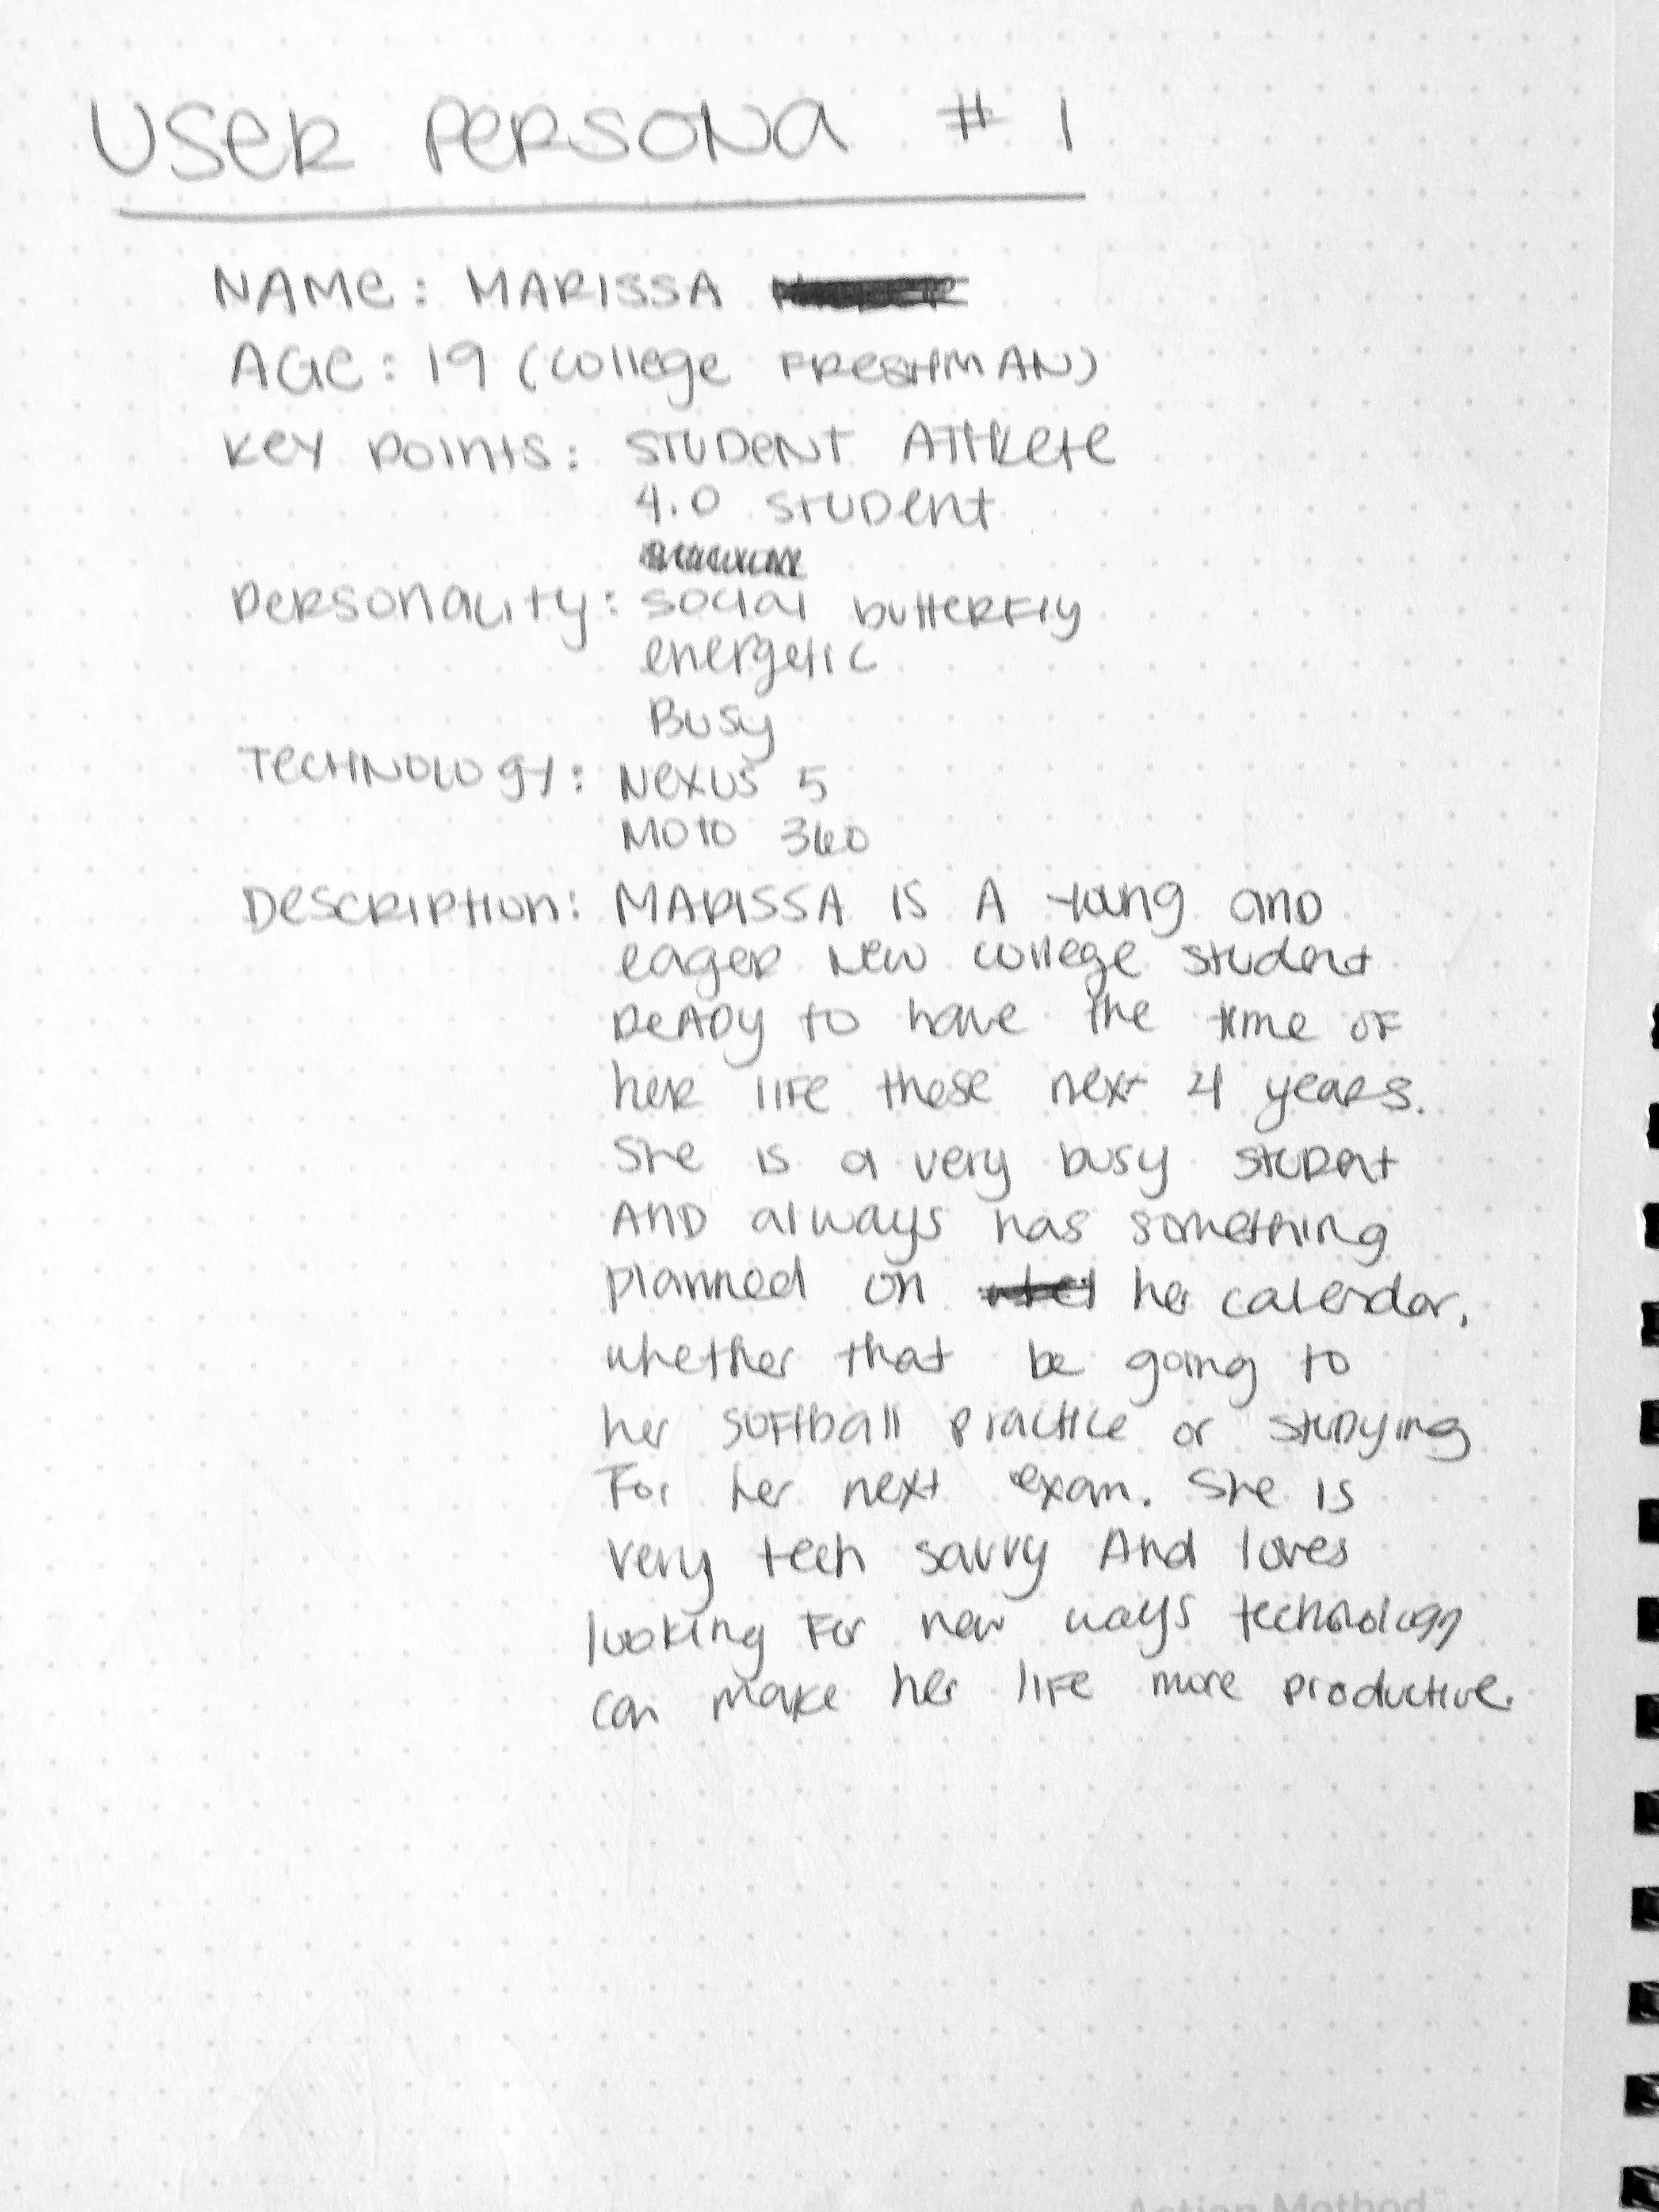 USER PERSONA #1
NAME: MARISSA
AGE: 19 (college FRESHMAN)
KEY POINTS: STUDENT ATHLETE
4.0 STUDENT
Personality: social butterfly
energetic
Busy
Technology: Nexus 5
Moto 360
Description: MARISSA IS A young and
eager new college student
ready to have the time of
her life these next 4 years.
She is a very busy student
AND always has something
planned on her calendar,
whether that be going to
her softball practice or studying
For her next exam. She is
very tech savvy And loves
looking For new ways technology
can make her life more productive.
Action Method